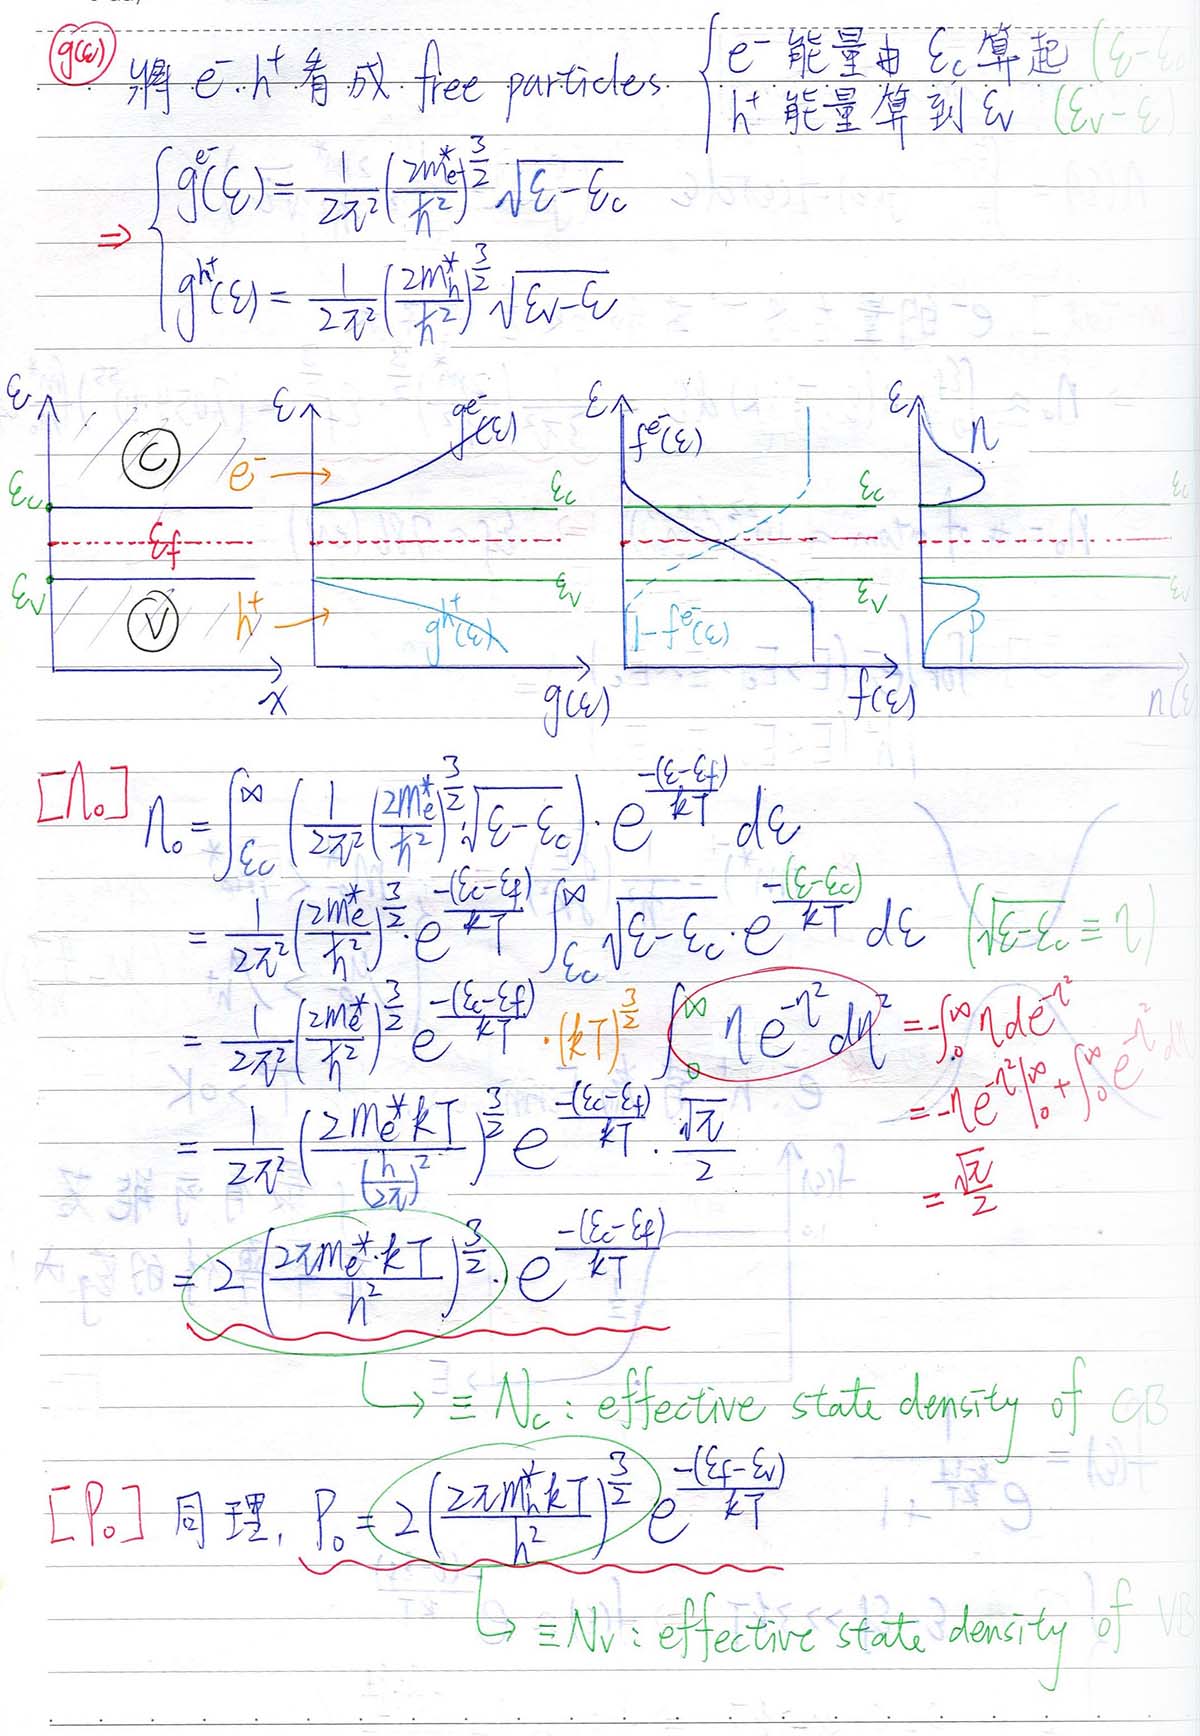 g(ε) 將 e⁻、h⁺ 看成 free particles { e⁻ 能量由 εc 算起 (ε-εc)
h⁺ 能量算到 εv (εv-ε)
⇒ { g^{e⁻}(ε) = 1/2π² (2m*e/ħ²)^{3/2} √(ε-εc)
g^{h⁺}(ε) = 1/2π² (2m*h/ħ²)^{3/2} √(εv-ε)
ε ε ε ε
C e⁻ → g^{e⁻}(ε) f^{e⁻}(ε) n
εc εc εc εc
εf
εv εv εv εv
V h⁺ → g^{h⁺}(ε) 1-f^{e⁻}(ε) p
x g(ε) f(ε) n(ε)
[n₀] n₀ = ∫_{εc}^{∞} (1/2π² (2m*e/ħ²)^{3/2} · √(ε-εc)) · e^{-(ε-εf)/kT} dε
= 1/2π² (2m*e/ħ²)^{3/2} · e^{-(εc-εf)/kT} ∫_{εc}^{∞} √(ε-εc) · e^{-(ε-εc)/kT} dε (√(ε-εc) ≡ η)
= 1/2π² (2m*e/ħ²)^{3/2} e^{-(εc-εf)/kT} · (kT)^{3/2} ∫_0^∞ η e^{-η²} dη² = -∫_0^∞ η de^{-η²}
= -ηe^{-η²}|_0^∞ + ∫_0^∞ e^{-η²} dη
= √π/2
= 1/2π² (2m*e kT/(h/2π)²)^{3/2} e^{-(εc-εf)/kT} · √π/2
= 2 (2πm*e·kT/h²)^{3/2} · e^{-(εc-εf)/kT}
↳ ≡ Nc : effective state density of CB
[P₀] 同理, P₀ = 2 (2πm*h kT/h²)^{3/2} e^{-(εf-εv)/kT}
↳ ≡ Nv : effective state density of VB